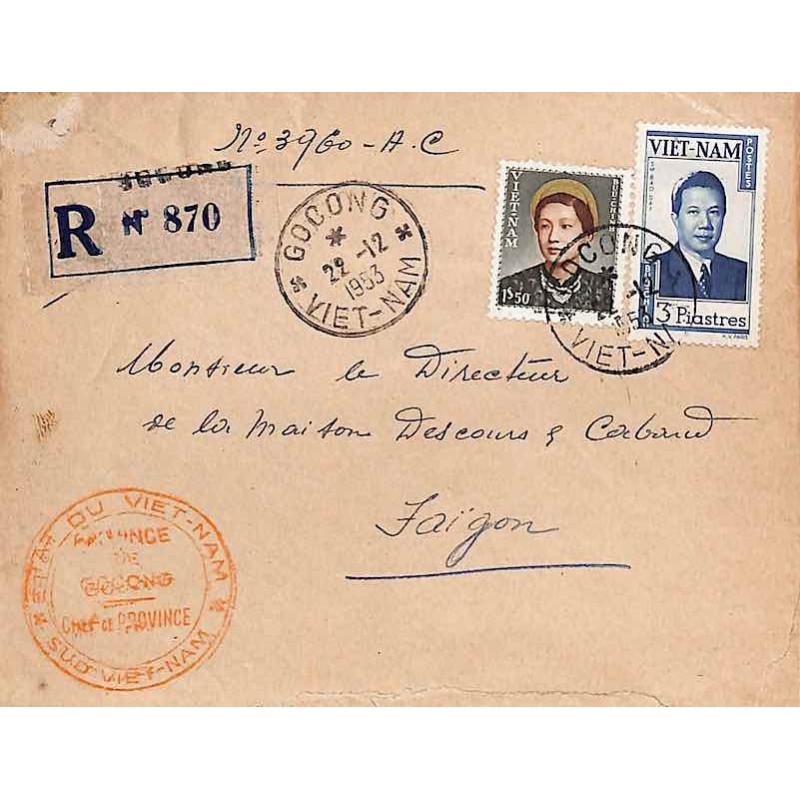 No 3960-A.C
GOCONG
R N° 870
* GOCONG *
22-12
1953
VIET-NAM
VIET-NAM
1$50
VIÊT-NAM
POSTES
S.M. BAO DAI
BUU CHINH
3 Piastres
GOCONG
VIET-NAM
Monsieur le Directeur
de la Maison Descours & Cabaud
Saïgon
* ETAT DU VIET-NAM *
PROVINCE
DE
GOCONG
CHEF DE PROVINCE
SUD VIET-NAM